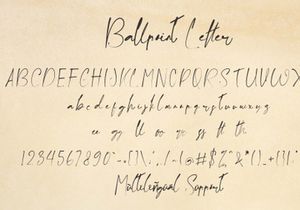 Ballpoint Letter
ABCDEFGHIJKLMNOPQRSTUVWX
abcdefghijklmnopqrstuvwxyz
ee gg ll oo rr ss ff tt th
1234567890
Multilingual Support